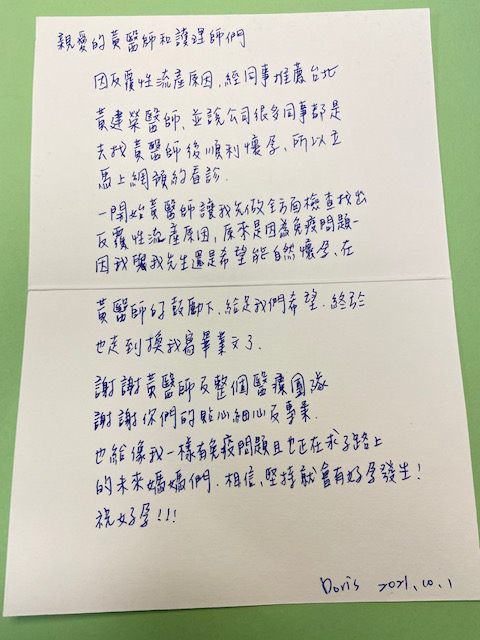 親愛的黃醫師和護理師們
因反覆性流產原因,經同事推薦台北
黃建榮醫師,並說公司很多同事都是
去找黃醫師後順利懷孕,所以立
馬上網預約看診.
一開始黃醫師讓我先做全面檢查找出
反覆性流產原因,原來是因為免疫問題-
因我與我先生還是希望能自然懷孕,在
黃醫師的鼓勵下,給足我們希望.終於
也走到換我寫畢業文了.
謝謝黃醫師及整個醫療團隊
謝謝你們的貼心細心及專業.
也給像我一樣有免疫問題且也正在求子路上
的未來媽媽們.相信,堅持就會有好孕發生!
祝好孕!!!
Doris 2021.10.1